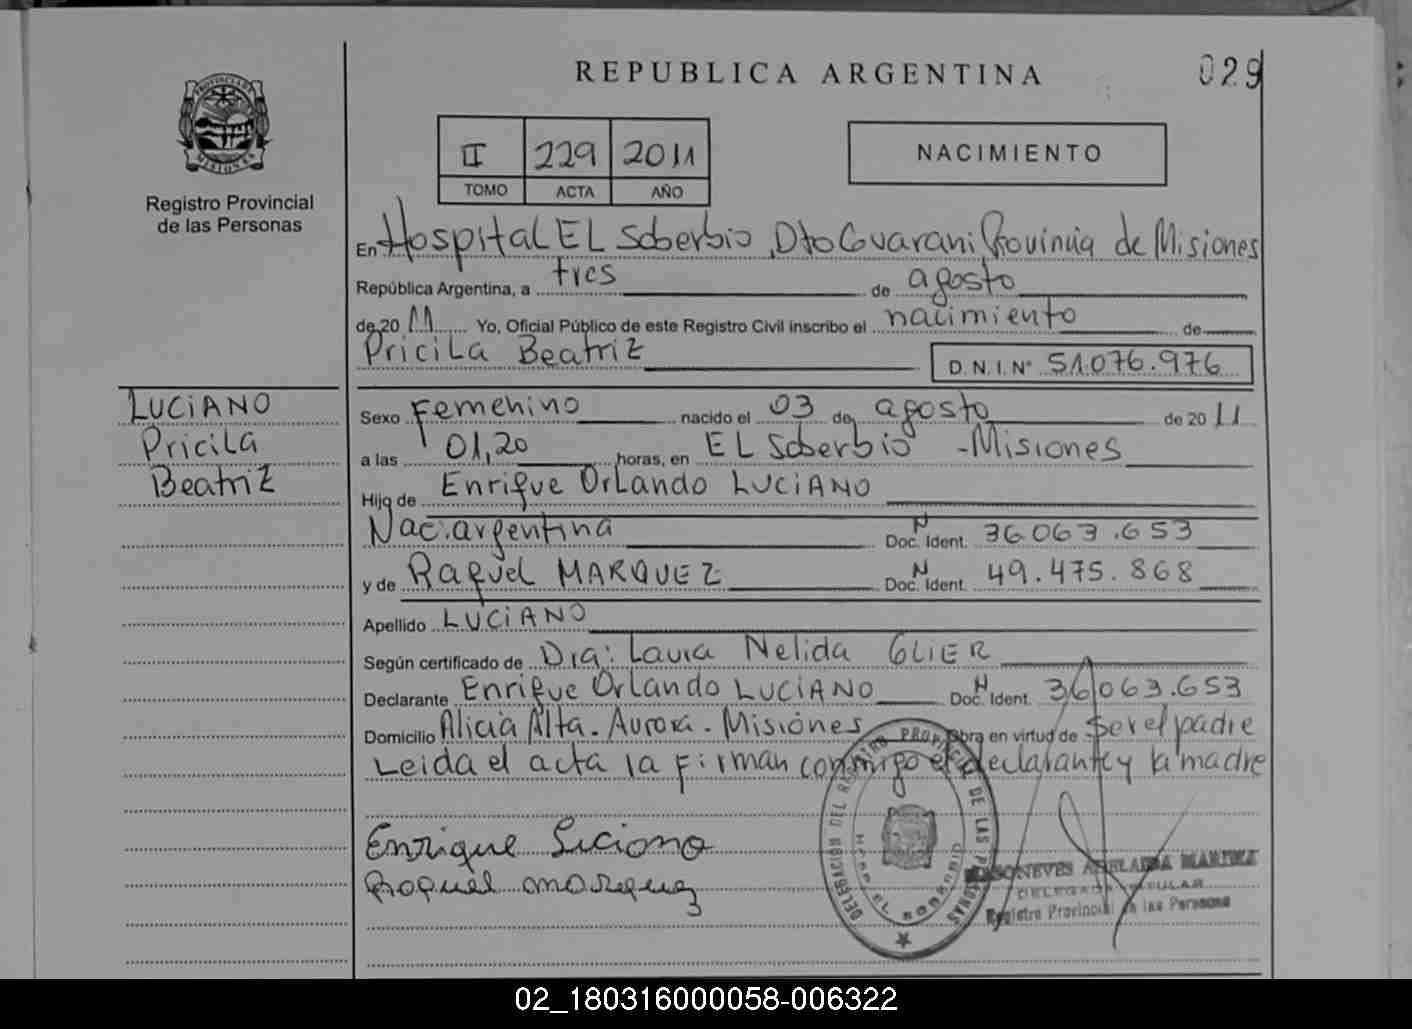 REPUBLICA ARGENTINA
029
Registro Provincial
de las Personas
II 229 2011
TOMO ACTA AÑO
NACIMIENTO
En Hospital EL Soberbio, Dto Guarani Provincia de Misiones
República Argentina, a tres de agosto
de 20 11 Yo, Oficial Público de este Registro Civil inscribo el nacimiento de
Pricila Beatriz
D.N.I. Nº 51.076.976
LUCIANO
Pricila
Beatriz
Sexo Femenino nacido el 03 de agosto de 20 11
a las 01,20 horas, en EL Soberbio - Misiones
Hijo de Enrique Orlando LUCIANO
Nac. argentina Doc. Ident. N 36.063.653
y de Raquel MARQUEZ Doc. Ident. N 49.475.868
Apellido LUCIANO
Según certificado de Dra: Laura Nelida GLIER
Declarante Enrique Orlando LUCIANO Doc. Ident. N 36.063.653
Domicilio Alicia Alta. Aurora. Misiones Obra en virtud de ser el padre
Leida el acta la firman conmigo el declarante y la madre
Enrique Luciano
Raquel marquez
DELEGACION DEL REGISTRO PROVINCIAL DE LAS PERSONAS
EL SOBERBIO
ADELAIDA
DELEGADA TITULAR
Registro Provincial de las Personas
02_180316000058-006322